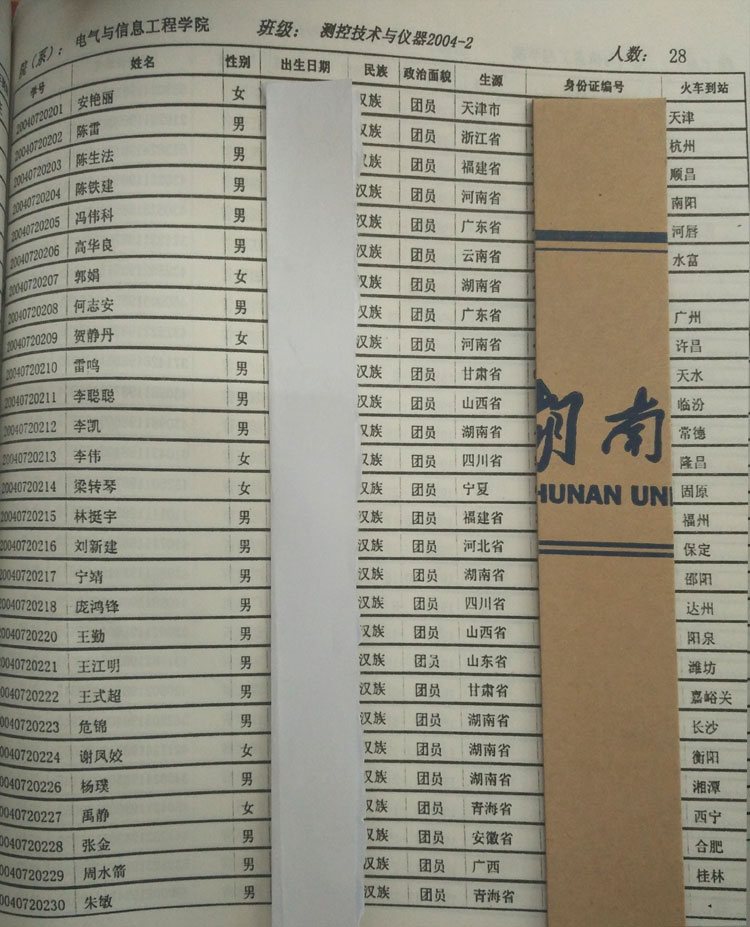 院（系）： 电气与信息工程学院 班级： 测控技术与仪器2004-2 人数： 28
学号 姓名 性别 出生日期 民族 政治面貌 生源 身份证编号 火车到站
20040720201 安艳丽 女 汉族 团员 天津市 天津
20040720202 陈雷 男 汉族 团员 浙江省 杭州
20040720203 陈生法 男 汉族 团员 福建省 顺昌
20040720204 陈铁建 男 汉族 团员 河南省 南阳
20040720205 冯伟科 男 汉族 团员 广东省 河唇
20040720206 高华良 男 汉族 团员 云南省 水富
20040720207 郭娟 女 汉族 团员 湖南省
20040720208 何志安 男 汉族 团员 广东省 广州
20040720209 贺静丹 女 汉族 团员 河南省 许昌
20040720210 雷鸣 男 汉族 团员 甘肃省 天水
20040720211 李聪聪 男 汉族 团员 山西省 临汾
20040720212 李凯 男 汉族 团员 湖南省 常德
20040720213 李伟 女 汉族 团员 四川省 隆昌
20040720214 梁转琴 女 汉族 团员 宁夏 固原
20040720215 林挺宇 男 汉族 团员 福建省 福州
20040720216 刘新建 男 汉族 团员 河北省 保定
20040720217 宁靖 男 汉族 团员 湖南省 邵阳
20040720218 庞鸿锋 男 汉族 团员 四川省 达州
20040720220 王勤 男 汉族 团员 山西省 阳泉
20040720221 王江明 男 汉族 团员 山东省 潍坊
20040720222 王式超 男 汉族 团员 甘肃省 嘉峪关
20040720223 危锦 男 汉族 团员 湖南省 长沙
20040720224 谢凤姣 女 汉族 团员 湖南省 衡阳
20040720226 杨璞 男 汉族 团员 湖南省 湘潭
20040720227 禹静 女 汉族 团员 青海省 西宁
20040720228 张金 男 汉族 团员 安徽省 合肥
20040720229 周水箭 男 汉族 团员 广西 桂林
20040720230 朱敏 男 汉族 团员 青海省
湖南
HUNAN UNI